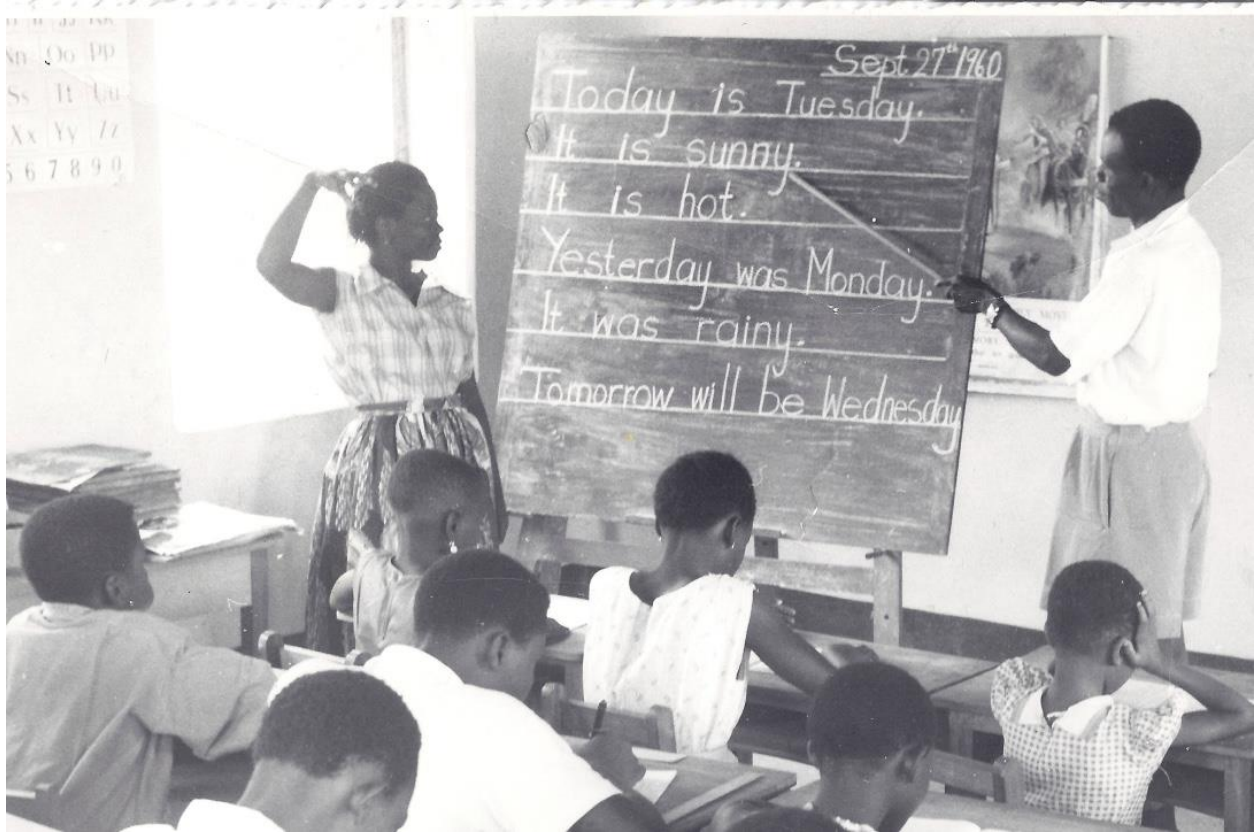 Nn Oo Pp
Ss Tt Uu
Xx Yy Zz
5 6 7 8 9 0
Sept 27th 1960
Today is Tuesday.
It is sunny.
It is hot.
Yesterday was Monday.
It was rainy.
Tomorrow will be Wednesday